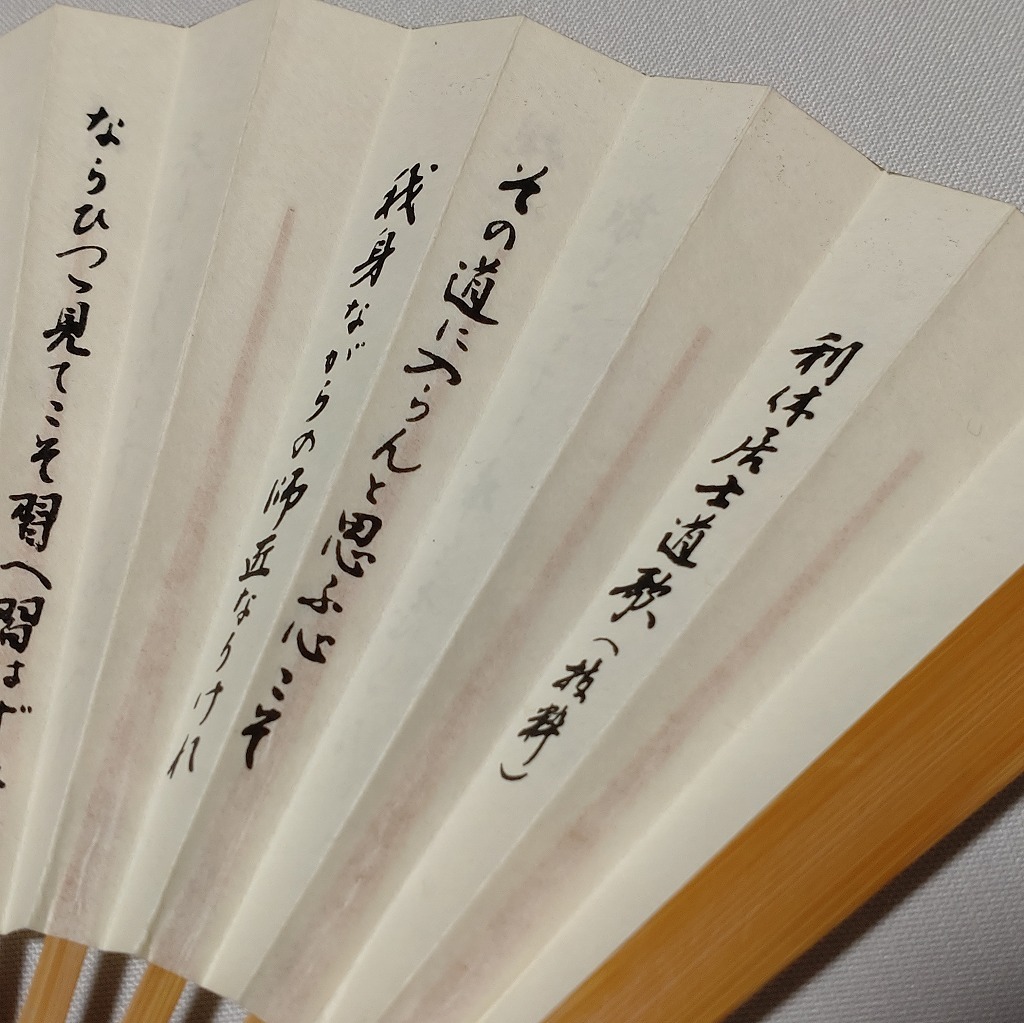 利休居士道歌（抜粋）
その道に入らんと思ふ心こそ
我身ながらの師匠なりけれ
ならひつゝ見てこそ習へ習はず